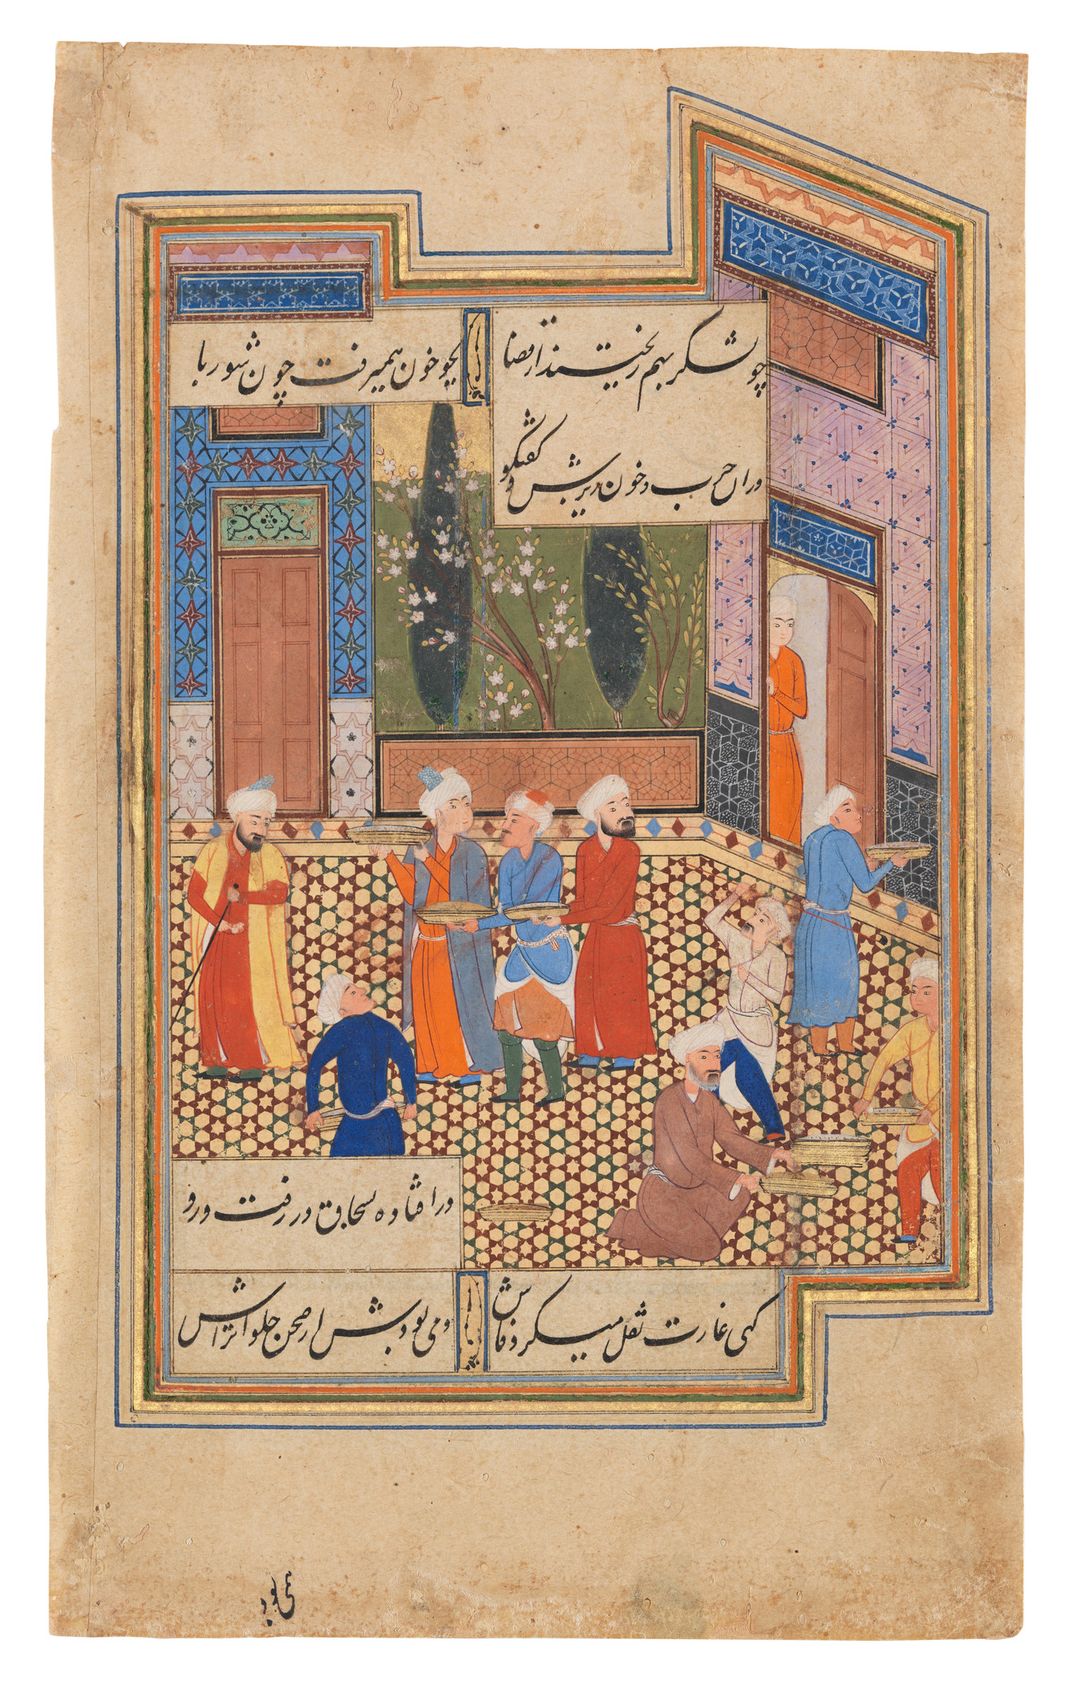 چو لشکر بهم ریختند از قضا
بجو خون همیرفت چون شوربا
در ان حرب و خون ریزش و گفتگو
در افتاده سحاق در رفت و رو
کهی غارت نقل میکرد فاش
دمی بودبش از صحن حلوا تراش